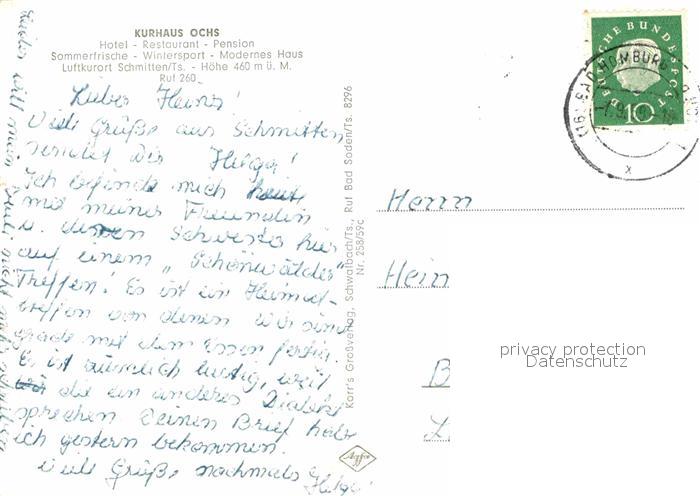 KURHAUS OCHS
Hotel - Restaurant - Pension
Sommerfrische - Wintersport - Modernes Haus
Luftkurort Schmitten/Ts. - Höhe 460 m ü. M.
Ruf 260
Lieber Heiner!
Viele Grüße aus Schmitten
sendet Dir Helga!
Ich befinde mich heute
mit meiner Freundin
u. deren Schwester hier
auf einem „Schönwälder"
Treffen! Es ist ein Heimat-
treffen von denen wir sind
grade mit dem Essen fertig.
Es ist ziemlich lustig, weil
die ein anderes Dialekt
sprechen Deinen Brief habe
ich gestern bekommen.
Viele Grüße nochmals Helga!
Leider will mein Kuli nicht mehr schreiben
Karr's Großverlag, Schwalbach/Ts., Ruf Bad Soden/Ts. 8296
Nr. 258/59c
Agfa
DEUTSCHE BUNDESPOST
10
(16) BAD HOMBURG
Herrn
Hein
B
privacy protection
Datenschutz